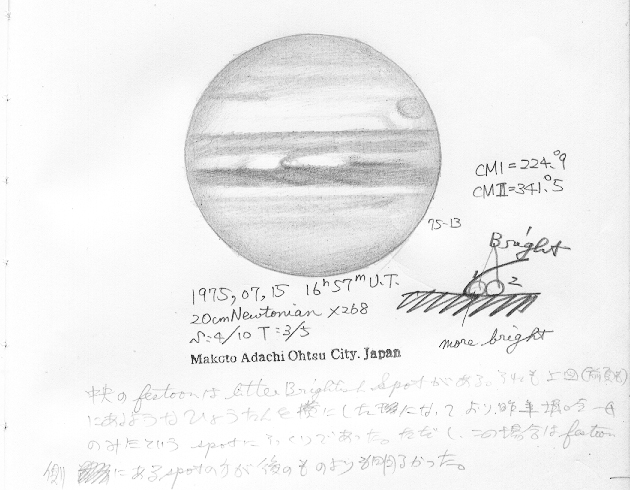 CMI = 224.°9
CMII = 341.°5
75-13
Bright
1 2
more bright
1975, 07, 15 16h 57m U.T.
20cm Newtonian ×268
S=4/10 T=3/5
Makoto Adachi Ohtsu City. Japan
中央の festoon は Bright Spot がある。
にあるようなひょうたんを横にした
のみたという spot にそっくりであった。ただし、この場合は festoon
側 にある spot の方が後のものよりも明るかった。